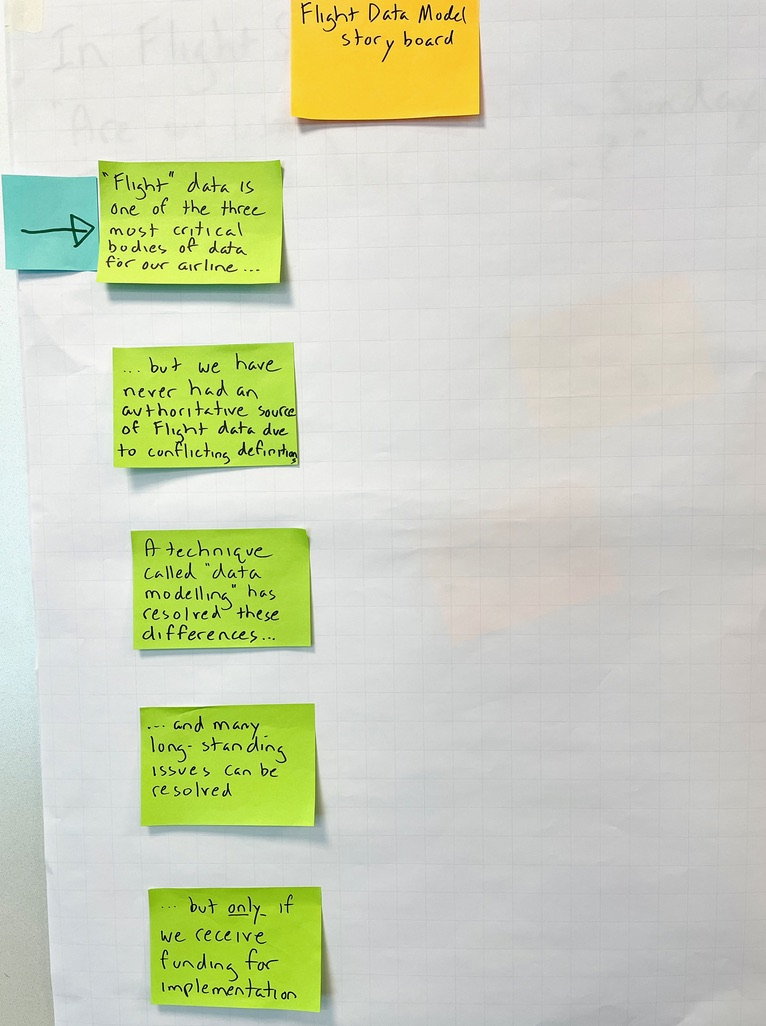 Flight Data Model
story board
In Flight
"Are
Sunday
"Flight" data is
one of the three
most critical
bodies of data
for our airline...
...but we have
never had an
authoritative source
of Flight data due
to conflicting definitions
A technique
called "data
modelling" has
resolved these
differences...
... and many
long-standing
issues can be
resolved
... but only if
we receive
funding for
implementation